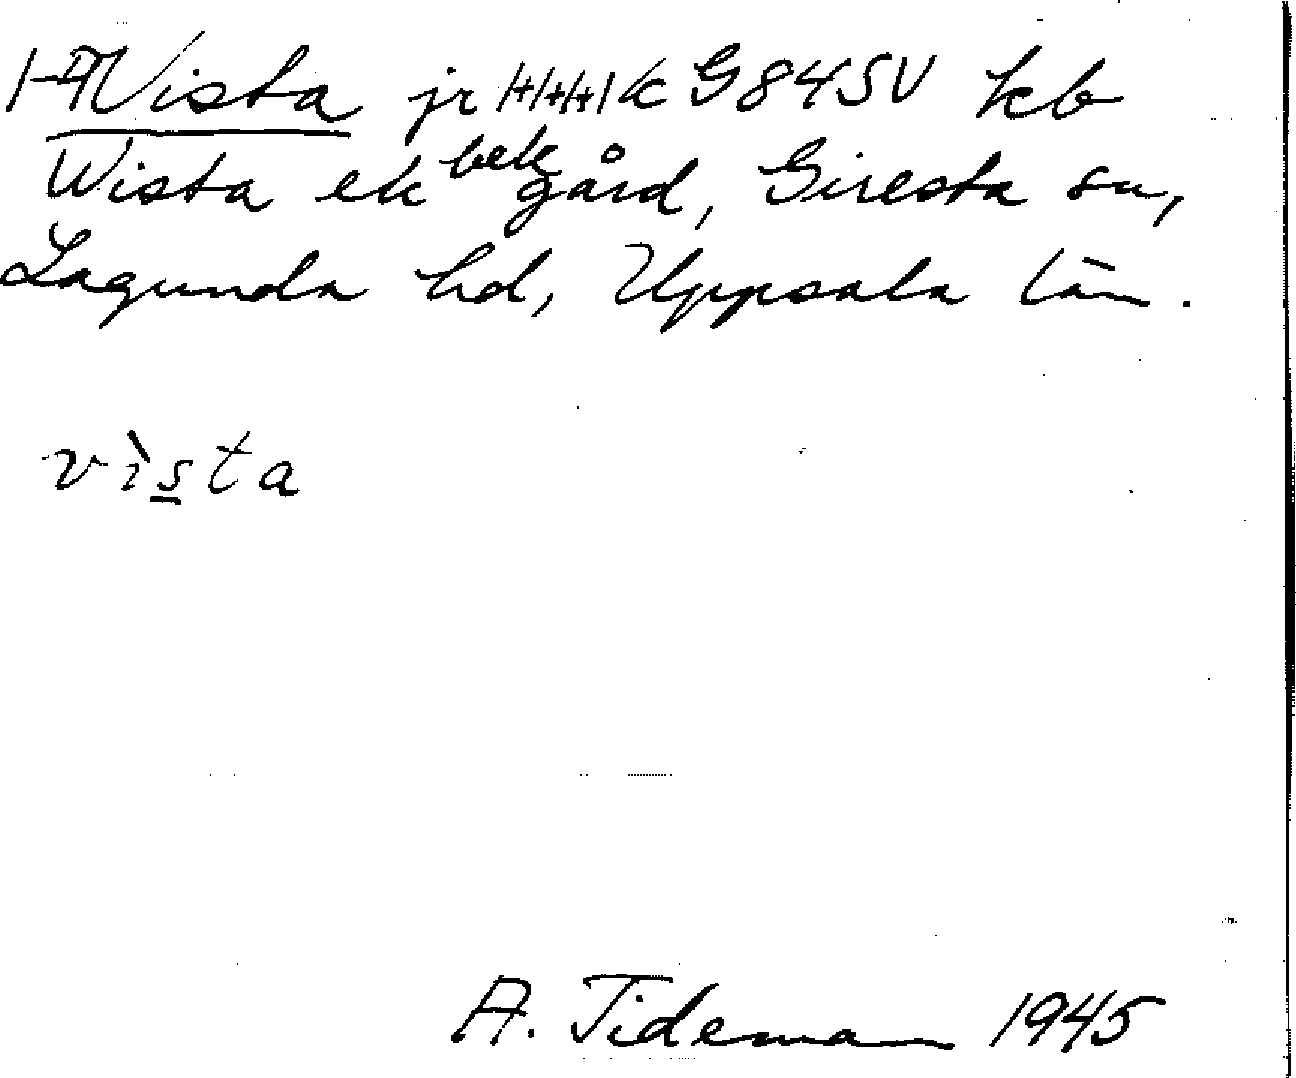 Vista jr G845V kb
Wista ek bek gård, Giresta sn,
Lagunda hd, Uppsala län.
vìsta
A. Tideman 1945